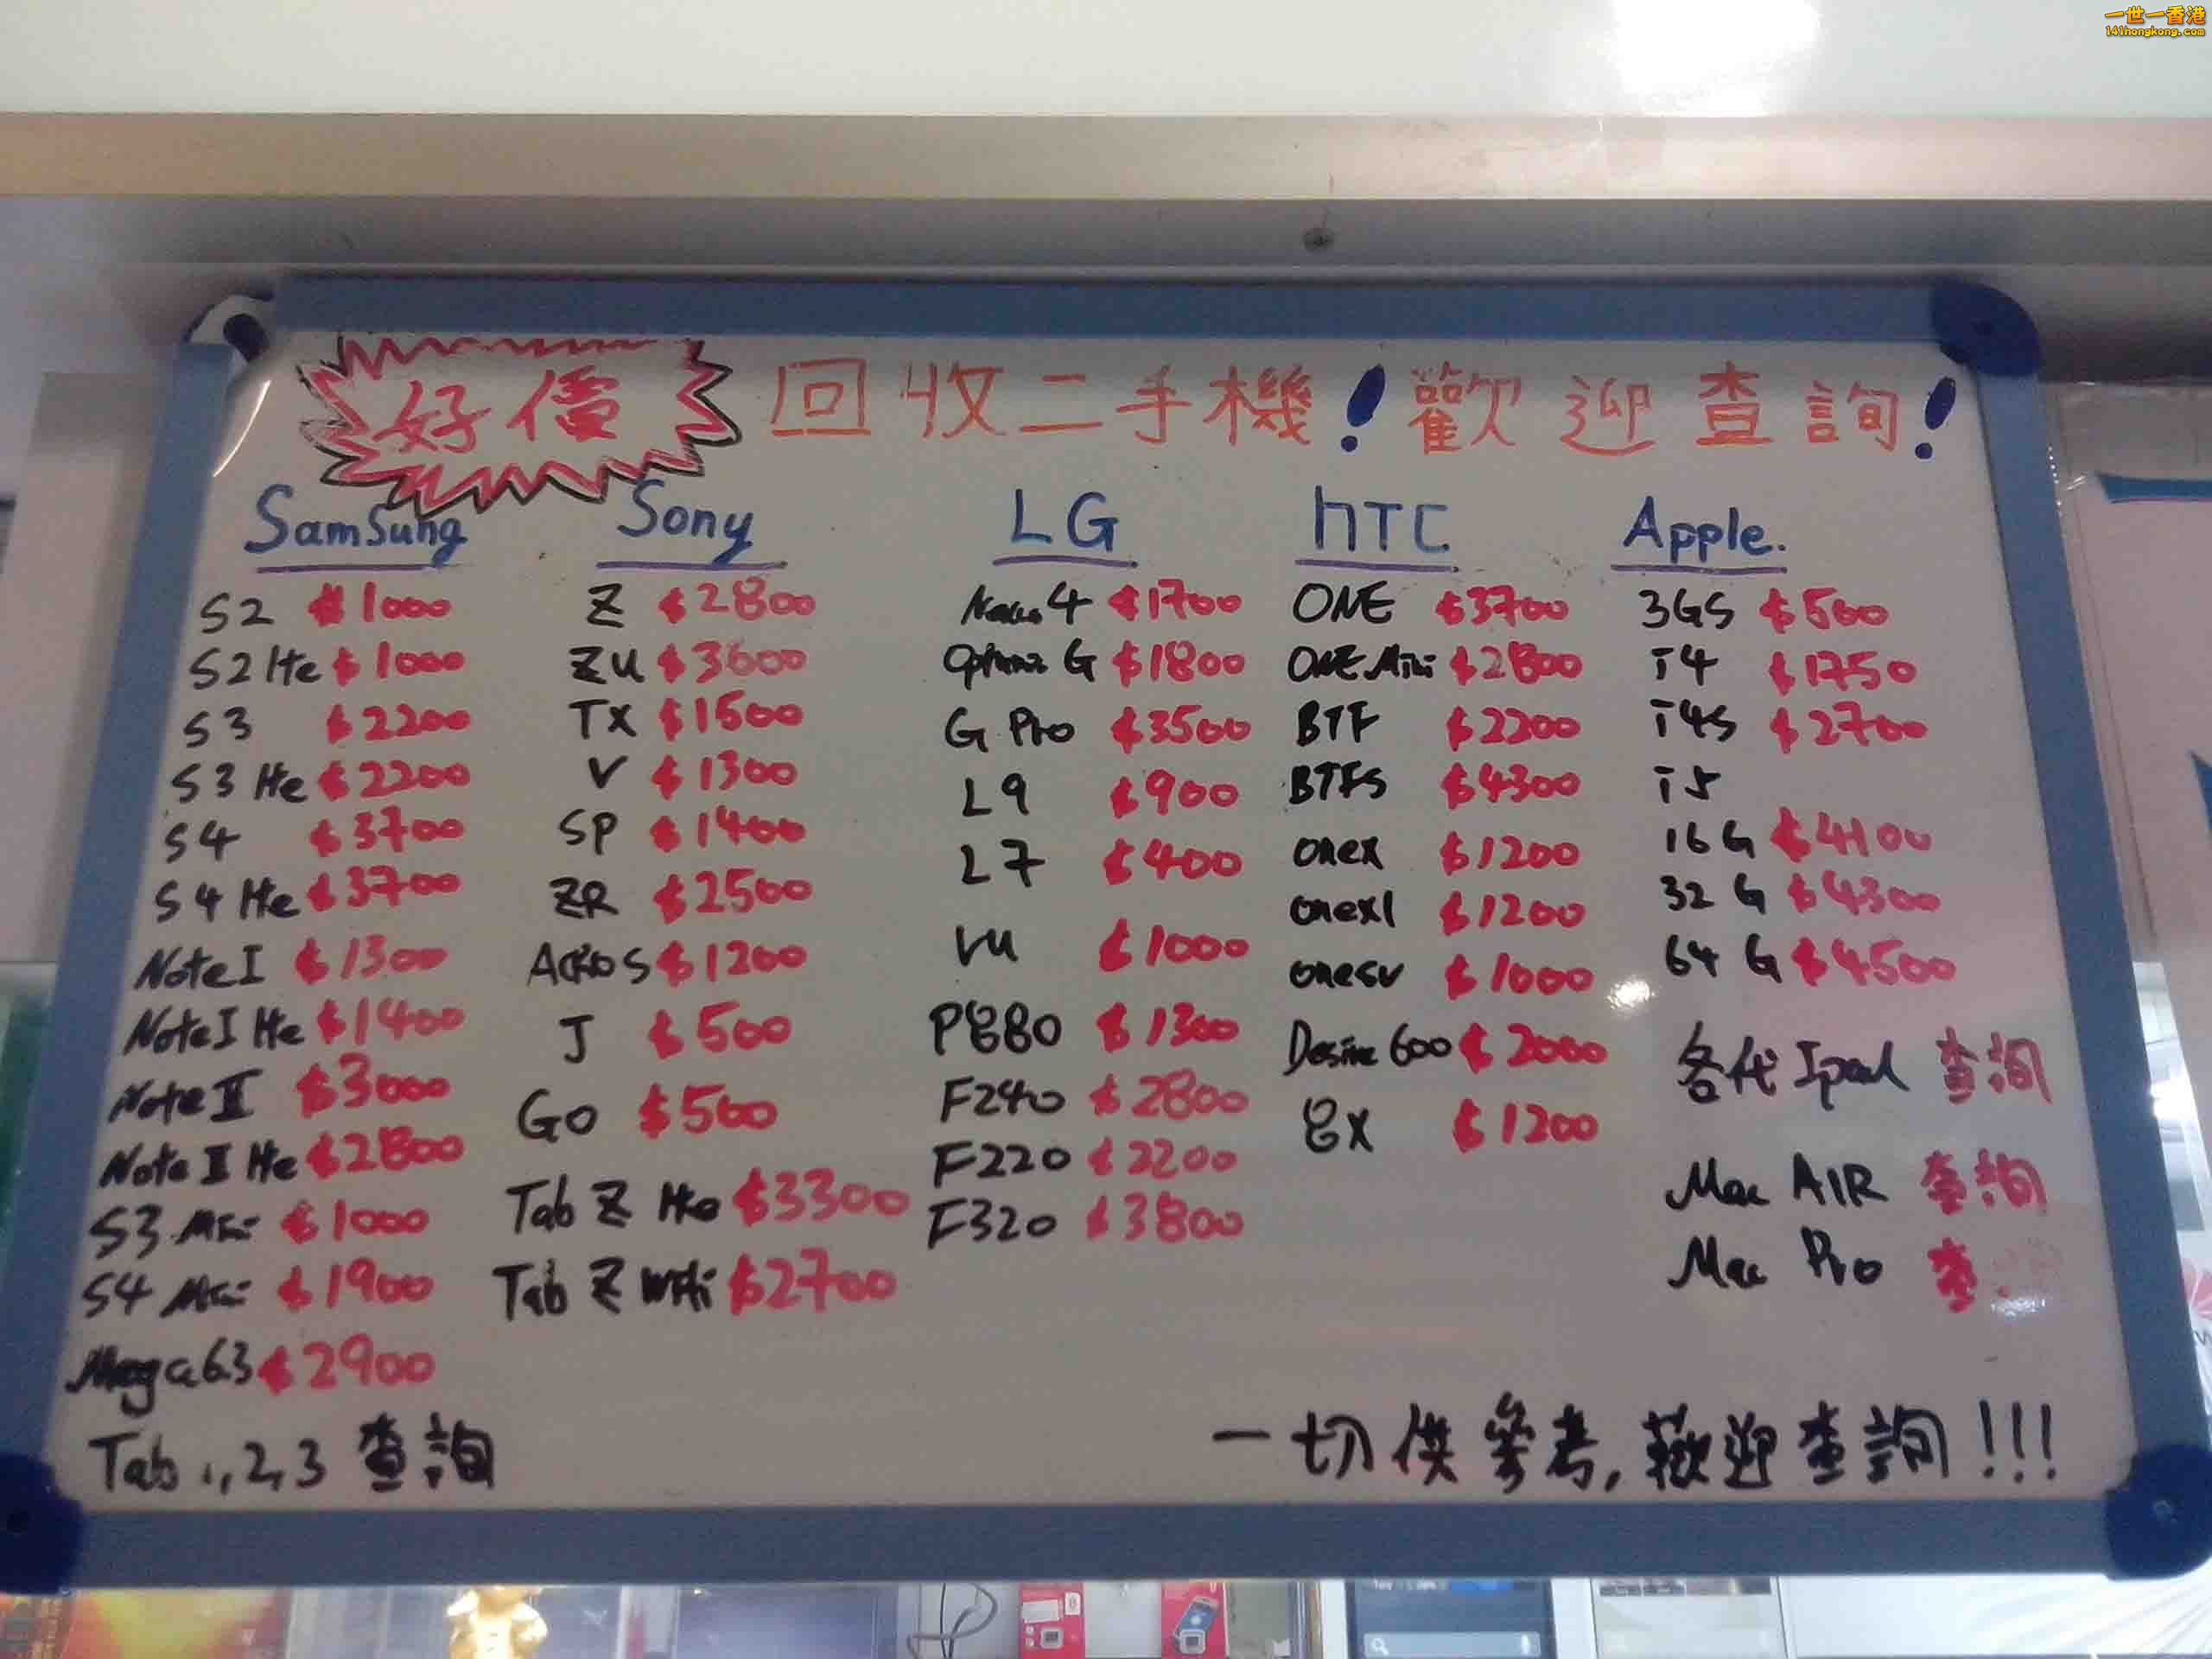 一世一香港
141hongkong.com
好價 回收二手機！歡迎查詢！
Samsung
S2 $1000
S2 Lte $1000
S3 $2200
S3 Lte $2200
S4 $3700
S4 Lte $3700
Note I $1300
Note I Lte $1400
Note II $3000
Note II Lte $2800
S3 Mini $1000
S4 Mini $1900
Mega 6.3 $2900
Tab 1,2,3 查詢
Sony
Z $2800
ZU $3600
TX $1500
V $1300
SP $1400
ZR $2500
Acro S $1200
J $500
Go $500
Tab Z Lte $3300
Tab Z Wifi $2700
LG
Nexus 4 $1700
Optimus G $1800
G Pro $3500
L9 $900
L7 $400
VU $1000
P880 $1300
F240 $2800
F220 $2200
F320 $3800
HTC
ONE $3700
ONE Mini $2800
BTF $2200
BTFS $4300
onex $1200
onexl $1200
onesv $1000
Desire 600 $2000
8X $1200
Apple.
3GS $500
i4 $1750
i4S $2700
i5
16 G $4100
32 G $4300
64 G $4500
各代 Ipad 查詢
Mac AIR 查詢
Mac Pro 查
一切供參考,歡迎查詢!!!